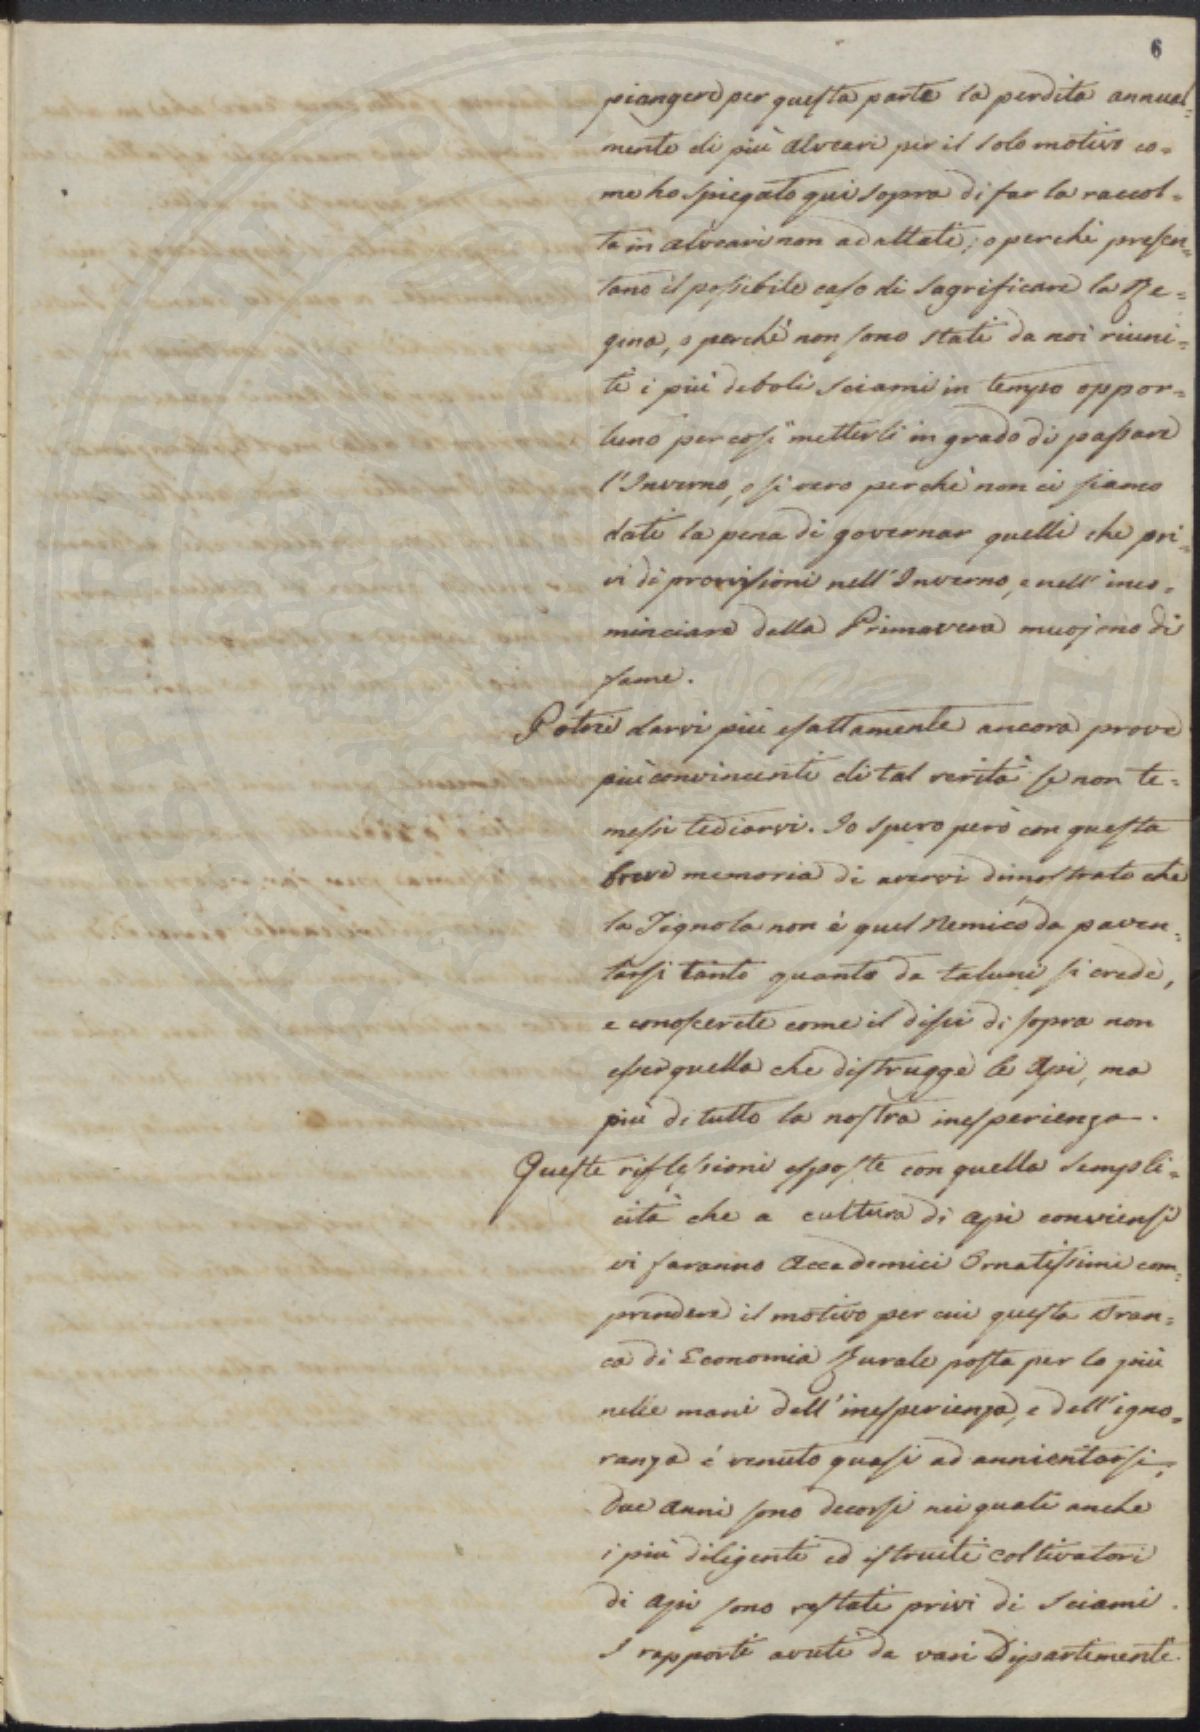 6
piangere per questa parte la perdita annual=
mente di più alveari per il solo motivo co=
me ho spiegato qui sopra di far la raccol=
ta in alveari non adattati; o perchè presen=
tano il possibile caso di sagrificare la Re=
gina, o perchè non sono stati da noi riuni=
ti i più deboli sciami in tempo oppor=
tuno per così metterli in grado di passare
l'Inverno, o sivero perchè non ci siamo
dati la pena di governar quelli che pri=
vi di provisioni nell'Inverno, e nell'inco=
minciare della Primavera muojono di
fame.
Potrei darvi più esattamente ancora prove
più convincenti di tal verità se non te=
messi tediarvi. Io spero però con questa
breve memoria di avervi dimostrato che
la Tignola non è quel Nemico da paven=
tarsi tanto quanto da taluni si crede,
e conoscerete come il dissi di sopra non
esser quella che distrugge le Api, ma
più di tutto la nostra inesperienza.
Queste riflessioni esposte con quella sempli=
cità che a cultura di api conviensi
vi faranno Accademici Ornatissimi com=
prendere il motivo per cui questa Bran=
ca di Economia Rurale posta per lo più
nelle mani dell'inesperienza, e dell'igno=
ranza è venuto quasi ad annientarsi,
Due anni sono decorsi nei quali anche
i più diligenti ed istruiti coltivatori
di api sono restati privi di sciami.
I rapporti avuti da vari Dipartimenti